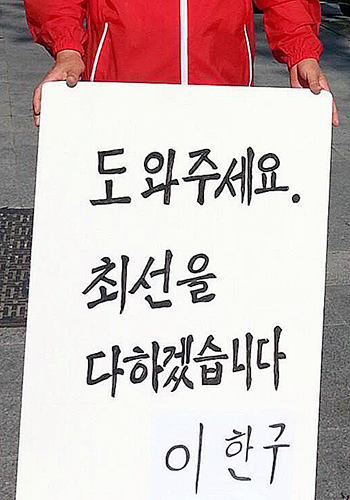 도와주세요.
최선을
다하겠습니다
이한구